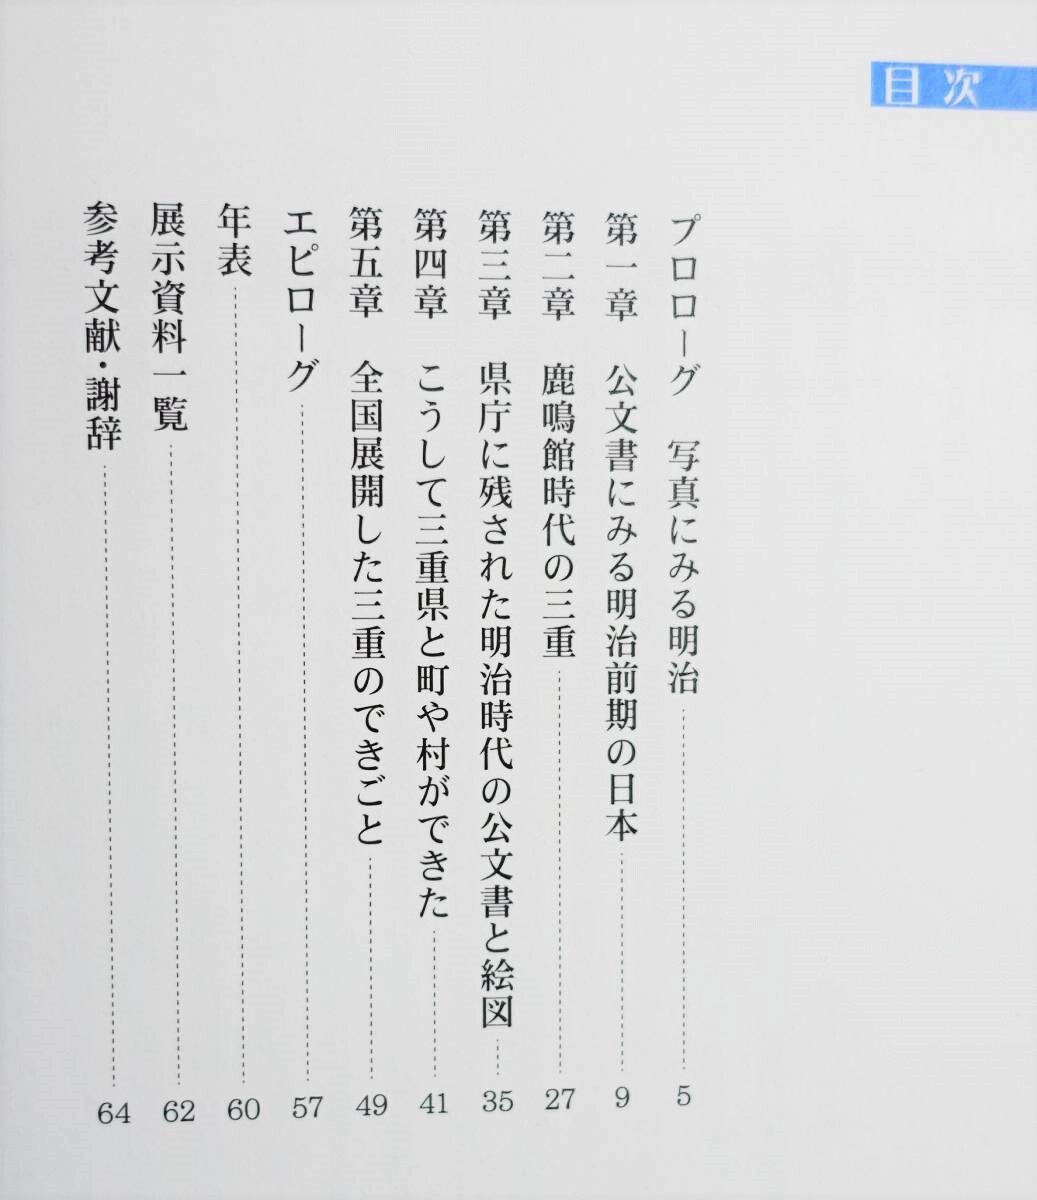 目次
プロローグ　写真にみる明治 5
第一章　公文書にみる明治前期の日本 9
第二章　鹿鳴館時代の三重 27
第三章　県庁に残された明治時代の公文書と絵図 35
第四章　こうして三重県と町や村ができた 41
第五章　全国展開した三重のできごと 49
エピローグ 57
年表 60
展示資料一覧 62
参考文献・謝辞 64